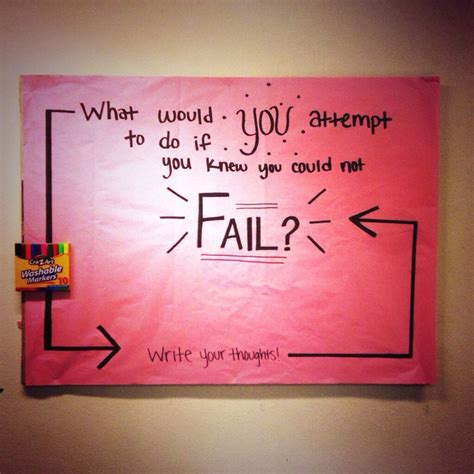 What would YOU attempt
to do if
you knew you could not
FAIL?
Cra-Z-Art
Washable
Markers
10
Write your thoughts!